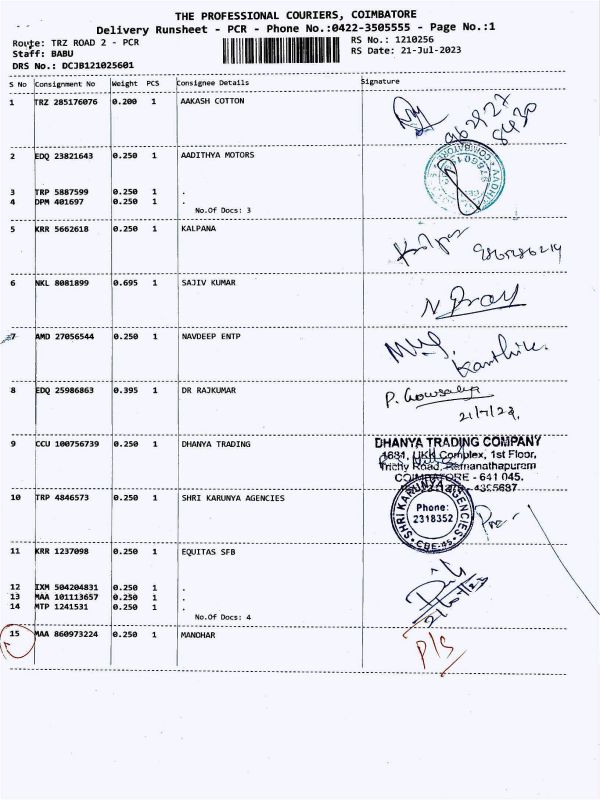 THE PROFESSIONAL COURIERS, COIMBATORE
Delivery Runsheet - PCR - Phone No.:0422-3505555 - Page No.:1
Route: TRZ ROAD 2 - PCR RS No.: 1210256
Staff: BABU RS Date: 21-Jul-2023
DRS No.: DCJB121025601
S No Consignment No Weight PCS Consignee Details Signature
1 TRZ 285176076 0.200 1 AAKASH COTTON
2 EDQ 23821643 0.250 1 AADITHYA MOTORS
3 TRP 5887599 0.250 1 .
4 DPM 401697 0.250 1 .
No.Of Docs: 3
5 KRR 5662618 0.250 1 KALPANA
6 NKL 8081899 0.695 1 SAJIV KUMAR
7 AMD 27056544 0.250 1 NAVDEEP ENTP
8 EDQ 25986863 0.395 1 DR RAJKUMAR
P. Gowsalya
21/7/23,
9 CCU 100756739 0.250 1 DHANYA TRADING
DHANYA TRADING COMPANY
Complex, 1st Floor,
Trichy Road, Ramanathapuram
COIMBATORE - 641 045.
10 TRP 4846573 0.250 1 SHRI KARUNYA AGENCIES
SHRI KARUNYA AGENCIES
Phone:
2318352
CBE-45
11 KRR 1237098 0.250 1 EQUITAS SFB
12 IXM 504204831 0.250 1 .
13 MAA 101113657 0.250 1 .
14 MTP 1241531 0.250 1 .
No.Of Docs: 4
15 MAA 860973224 0.250 1 MANOHAR
P/S